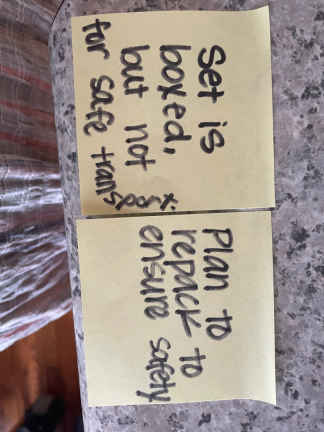 Set is
boxed,
but not
for safe trans
Plan to
repack to
ensure safety